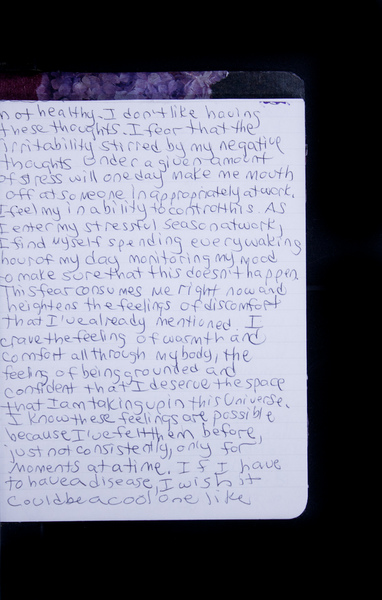 not healthy. I don't like having
these thoughts. I fear that the
irritability stirred by my negative
thoughts under a given amount
of stress will one day make me mouth
off at someone inappropriately at work.
I feel my inability to control this. As
I enter my stressful season at work,
I find myself spending every waking
hour of my day monitoring my mood
to make sure that this doesn't happen.
This fear consumes me right now and
heightens the feelings of discomfort
that I've already mentioned. I
crave the feeling of warmth and
comfort all through my body, the
feeling of being grounded and
confident that I deserve the space
that I am taking up in this Universe.
I know these feelings are possible
because I've felt them before,
just not consistently, only for
moments at a time. If I have
to have a disease, I wish it
could be a cool one like